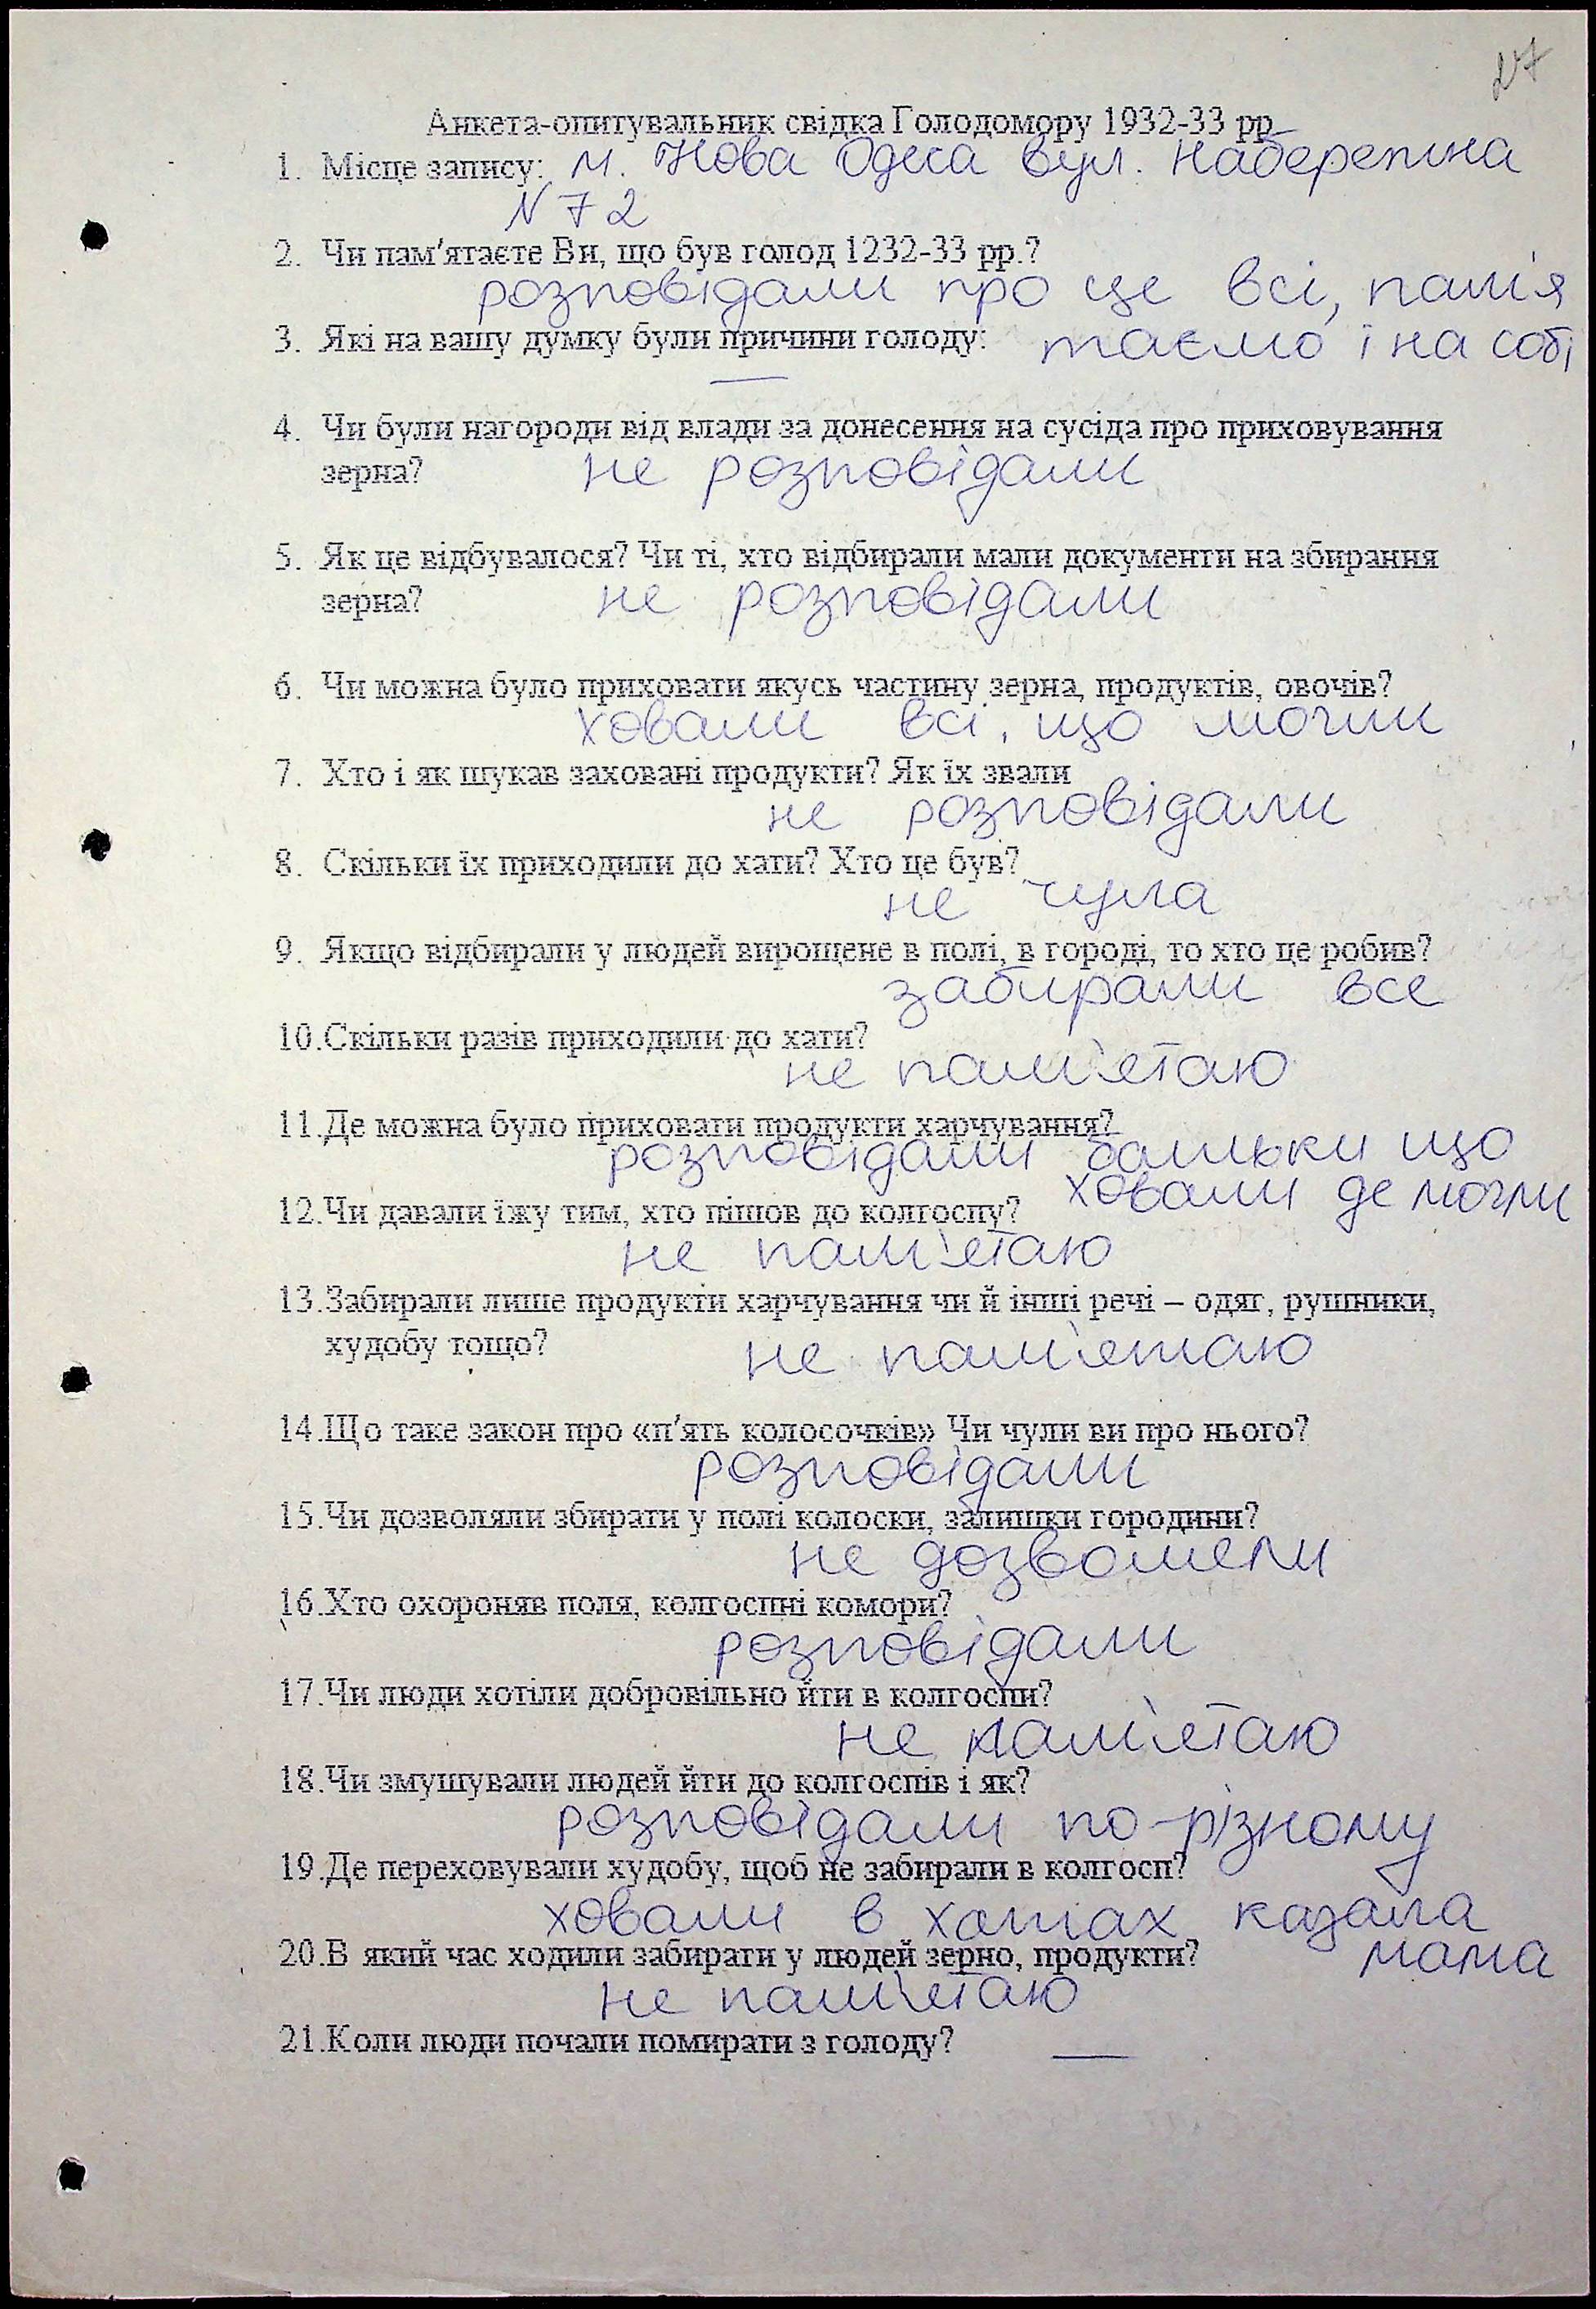 27
Анкета-опитувальник свідка Голодомору 1932-33 рр
1. Місце запису: м. Нова Одеса вул. Набережна
N 72
2. Чи пам'ятаєте Ви, що був голод 1232-33 рр.?
розповідали про це всі, пам'я
3. Які на вашу думку були причини голоду: таємо і на собі
—
4. Чи були нагороди від влади за донесення на сусіда про приховування
зерна? не розповідали
5. Як це відбувалося? Чи ті, хто відбирали мали документи на збирання
зерна? не розповідали
6. Чи можна було приховати якусь частину зерна, продуктів, овочів?
ховали всі, що могли
7. Хто і як шукав заховані продукти? Як їх звали
не розповідали
8. Скільки їх приходили до хати? Хто це був?
не чула
9. Якщо відбирали у людей вирощене в полі, в городі, то хто це робив?
забирали все
10.Скільки разів приходили до хати?
не пам'ятаю
11.Де можна було приховати продукти харчування?
розповідали батьки що
ховали де могли
12.Чи давали їжу тим, хто пішов до колгоспу?
не пам'ятаю
13.Забирали лише продукти харчування чи й інші речі – одяг, рушники,
худобу тощо? не пам'ятаю
14.Що таке закон про «п'ять колосочків» Чи чули ви про нього?
розповідали
15.Чи дозволяли збирати у полі колоски, залишки городини?
не дозволяли
16.Хто охороняв поля, колгоспні комори?
розповідали
17.Чи люди хотіли добровільно йти в колгоспи?
не пам'ятаю
18.Чи змушували людей йти до колгоспів і як?
розповідали по-різному
19.Де переховували худобу, щоб не забирали в колгосп?
ховали в хатах казала
20.В який час ходили забирати у людей зерно, продукти? мама
не пам'ятаю
21.Коли люди почали помирати з голоду? —